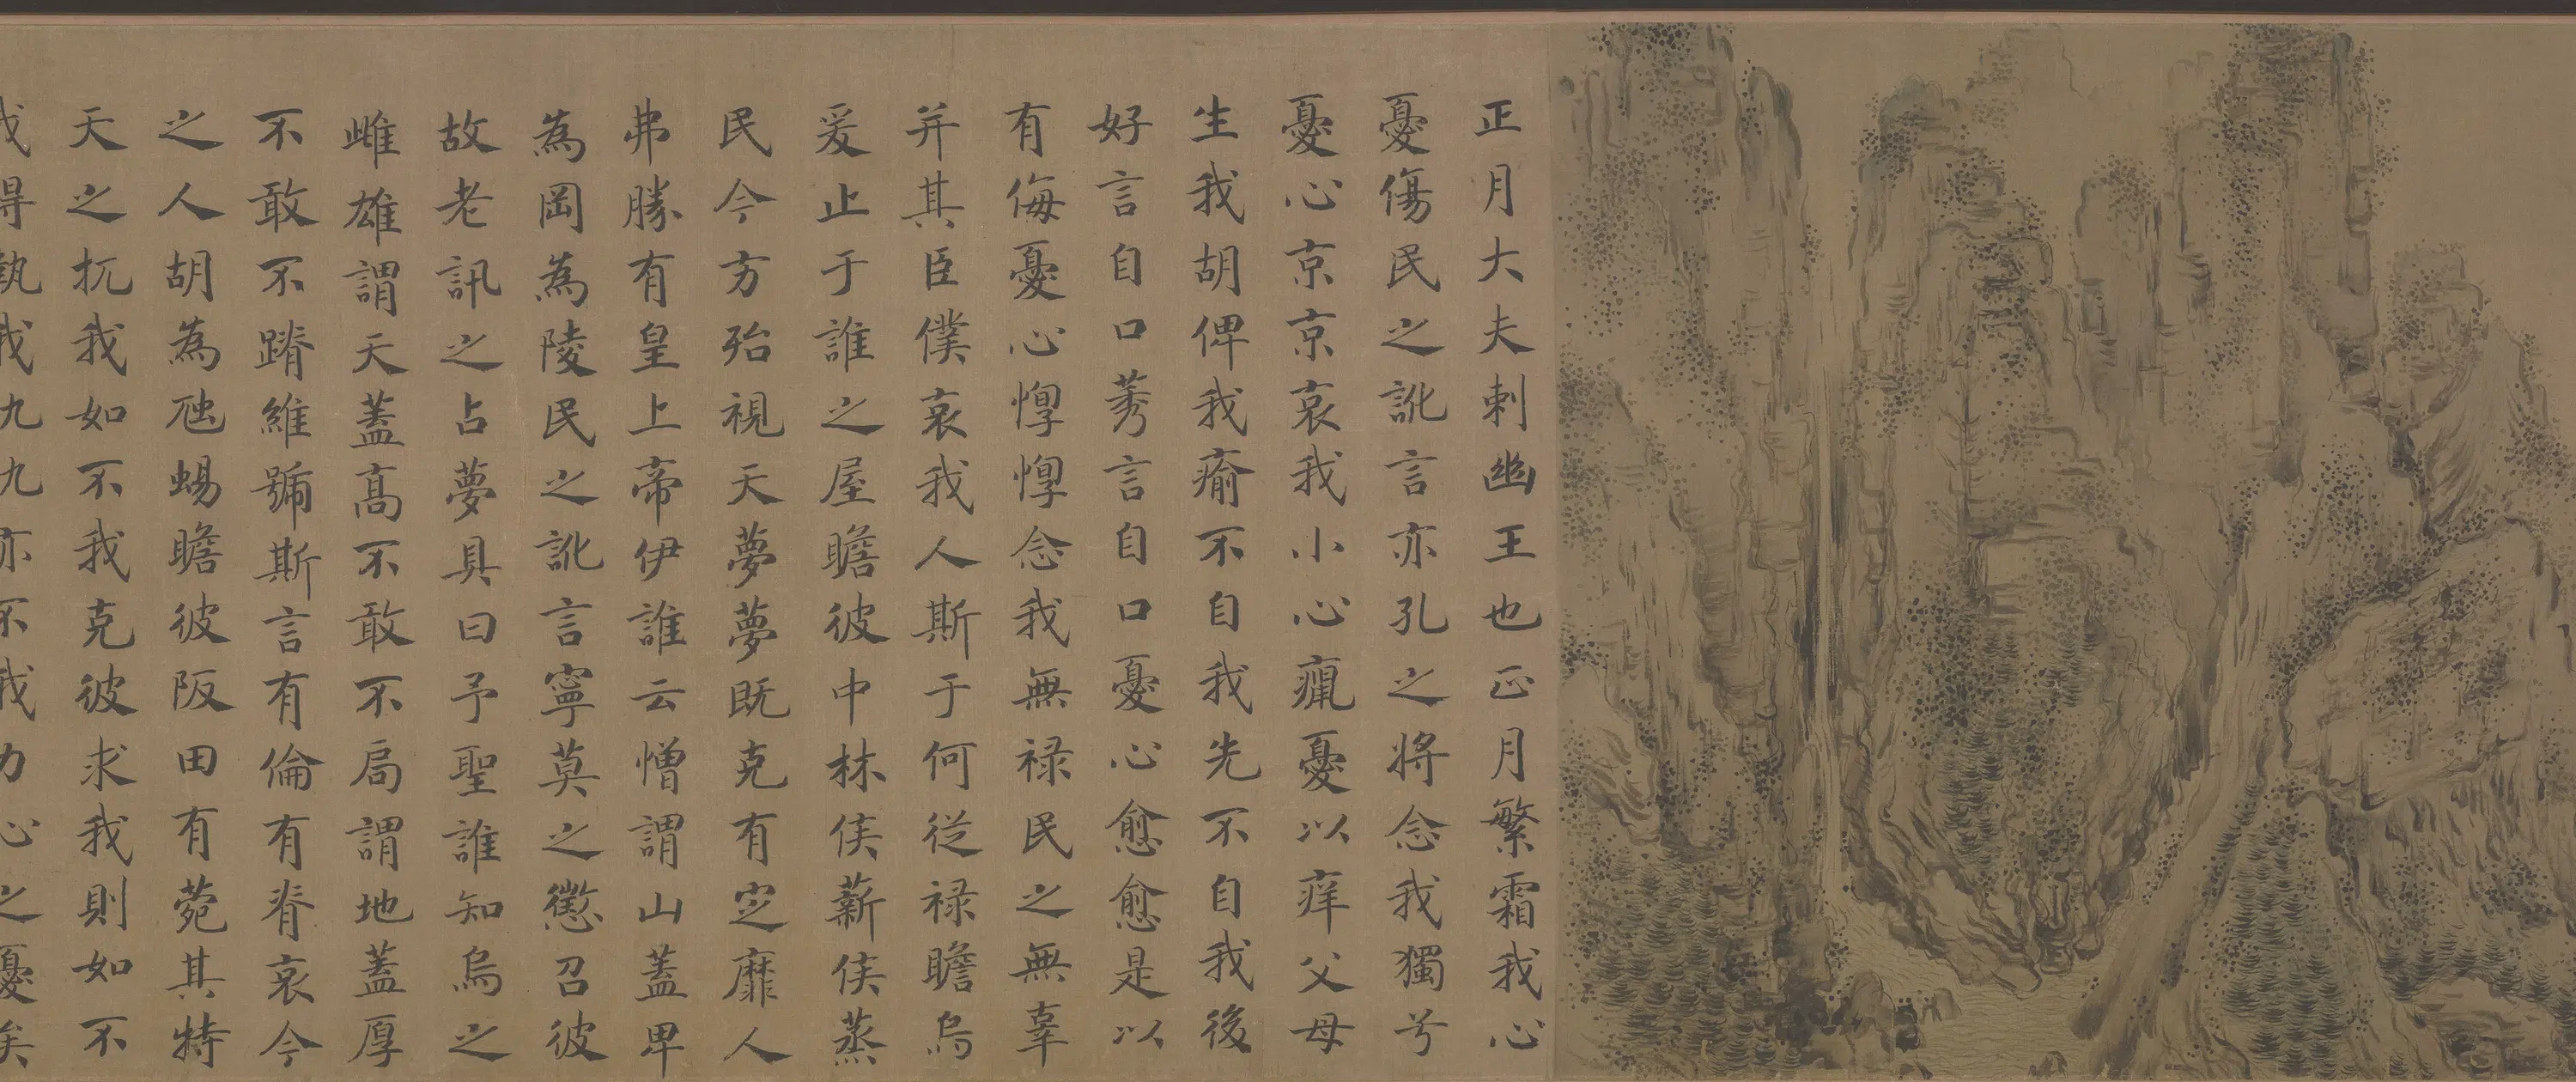 正月大夫刺幽王也正月繁霜我心
憂傷民之訛言亦孔之將念我獨兮
憂心京京哀我小心癙憂以痒父母
生我胡俾我瘉不自我先不自我後
好言自口莠言自口憂心愈愈是以
有侮憂心惸惸念我無禄民之無辜
并其臣僕哀我人斯于何從禄瞻烏
爰止于誰之屋瞻彼中林侯薪侯蒸
民今方殆視天夢夢既克有定靡人
弗勝有皇上帝伊誰云憎謂山蓋卑
為岡為陵民之訛言寧莫之懲召彼
故老訊之占夢具曰予聖誰知烏之
雌雄謂天蓋高不敢不局謂地蓋厚
不敢不蹐維號斯言有倫有脊哀今
之人胡為虺蜴瞻彼阪田有菀其特
天之扤我如不我克彼求我則如不
我得執我仇仇亦不我力心之憂矣